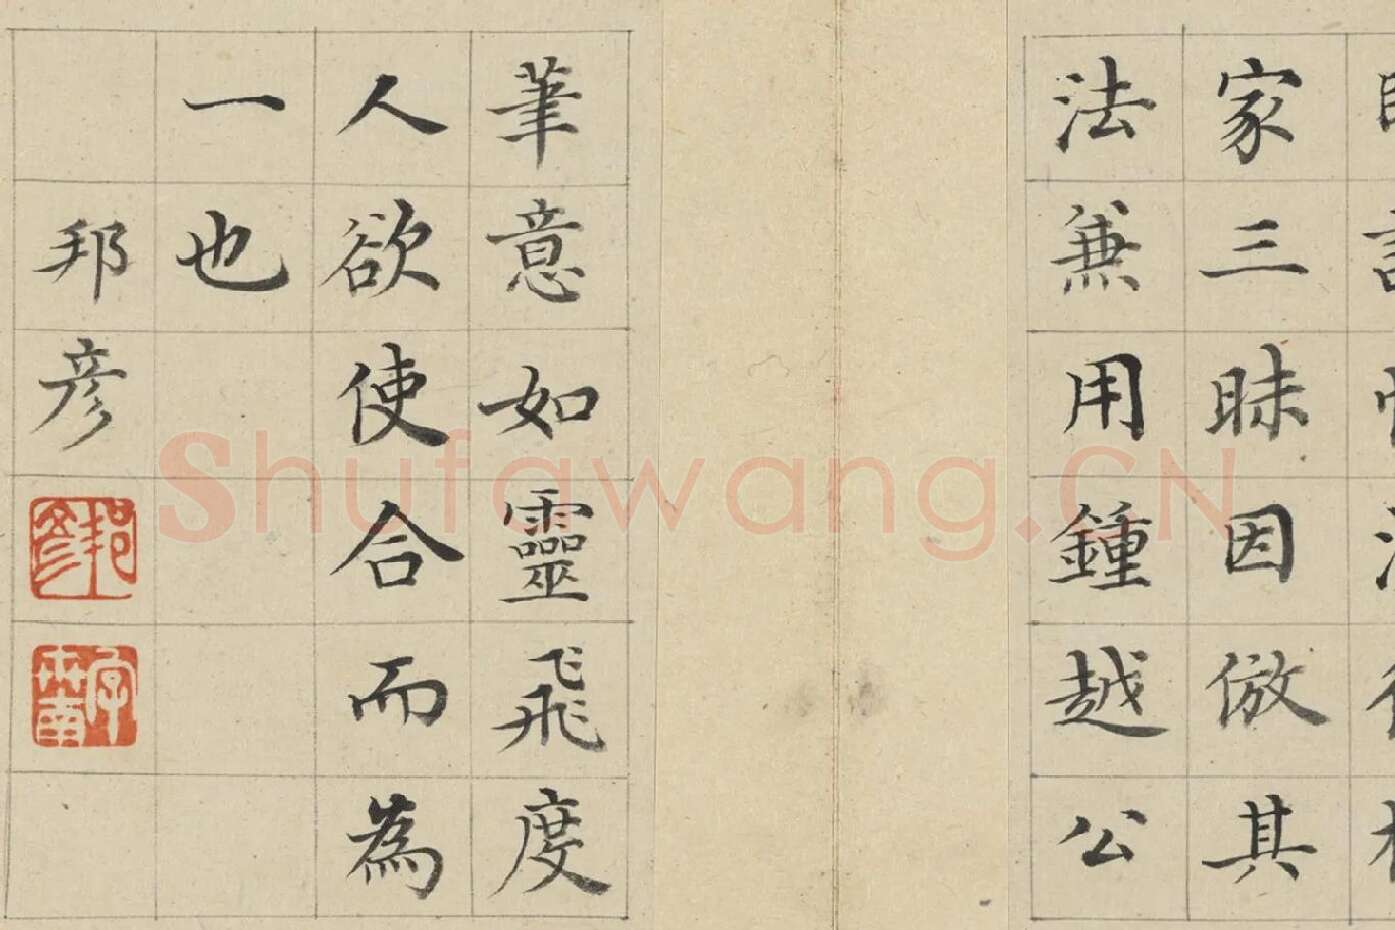 家三昧因倣其
法兼用鍾越公
筆意如靈飛度
人欲使合而為
一也
邦彦
邦彦
Shufawang.CN